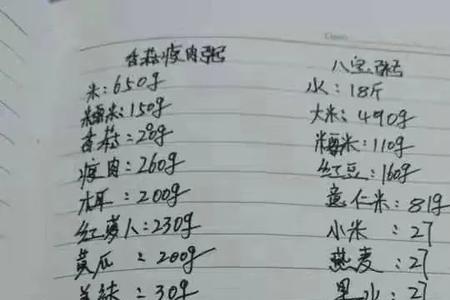 香菇瘦肉粥
米:650g
糯米:150g
香菇:20g
瘦肉:260g
木耳:200g
红萝卜:230g
黄瓜:200g
姜丝:30g
八宝粥
水:18斤
大米:490g
糯米:110g
红豆:160g
薏仁米:81g
小米:27
燕麦:27
黑米:27